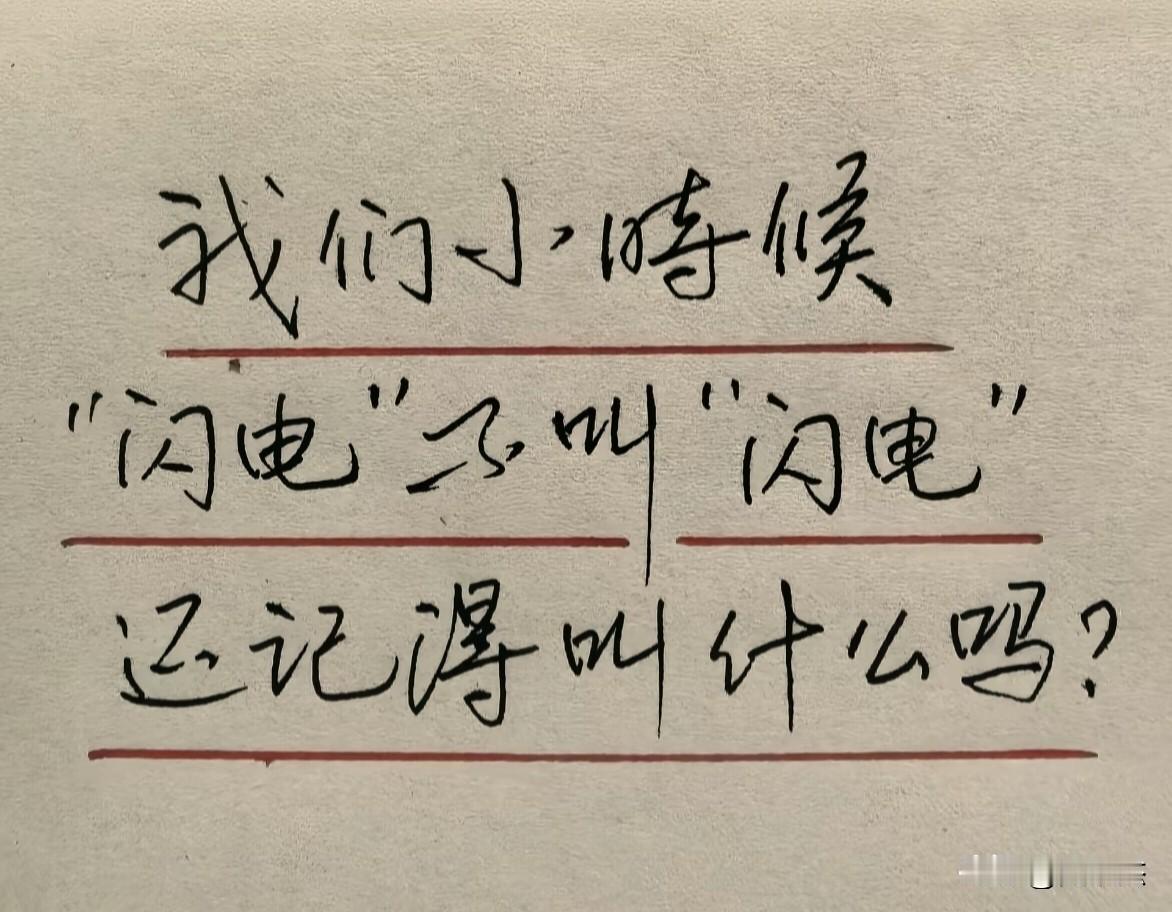 我们小時候
"闪电"不叫"闪电"
还记得叫什么吗?